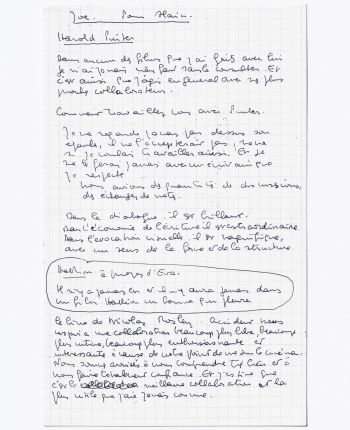 Joe. Pour Alain.
Harold Pinter
Dans aucun des films que j'ai faits avec lui
je n'ai jamais rien fait sans le consulter. Et
c'est ainsi que j'agis en général avec mes plus
grands collaborateurs.
Comment travaillez vous avec Pinter.
Je ne regarde jamais par dessus son
épaule, il ne l'accepterait pas, même
si je voulais travailler ainsi. Et je
ne le ferai jamais avec un écrivain que
je respecte.
Nous avions des quantités de discussions,
des échanges de notes.
Dans le dialogue, il est brillant.
Dans l'économie de l'écriture il est extraordinaire
Dans l'évocation visuelle, il est magnifique,
avec un sens de la force et de la structure
à propos d'Eva.
Il n'y a jamais eu et il n'y aura jamais dans
un film un homme qui pleure.
le livre de Nicolas Mosley Accident nous
a une collaboration beaucoup plus libre, beaucoup
plus intime, beaucoup plus enthousiasmante et
intéressante à cause de notre point de vue sur le cinéma.
Nous sommes arrivés à nous comprendre très bien et à
nous faire totalement confiance. Et j'estime que
c'est la meilleure collaboration et la
plus utile que j'aie jamais connue.